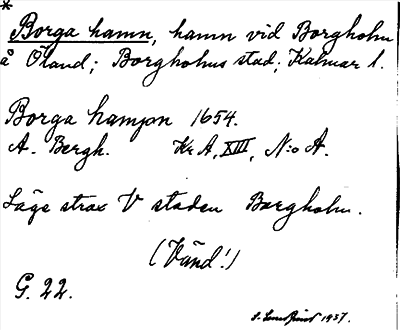 *
Borga hamn, hamn vid Borgholm
å Öland; Borgholms stad; Kalmar l.
Borga hampn 1654.
A. Bergh. Kr A, XIII, N:o A.
Läge strax V staden Borgholm.
(Vänd!)
G. 22.
1937.